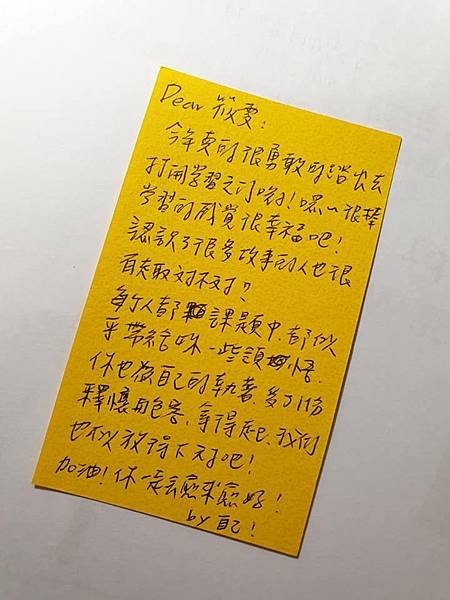 Dear 筱雯：
今年真的很勇敢的踏出去
打開學習之門喲！嘿～很棒
學習的感覺很幸福吧！
認識了很多故事的人也很
有趣對不對？
每个人都 課題中，都似
乎帶給咪一些領悟，
你也為自己的執著，多了份
釋懷與包容，拿得起，我們
也可以放得下對吧！
加油！你一定會愈來愈好！
by 自己！